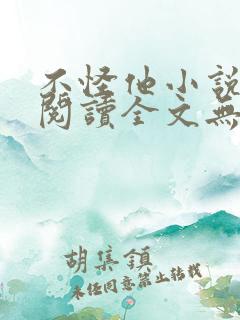 不怪他小說
閱讀全文無
胡集鎮
未經同意禁止轉載